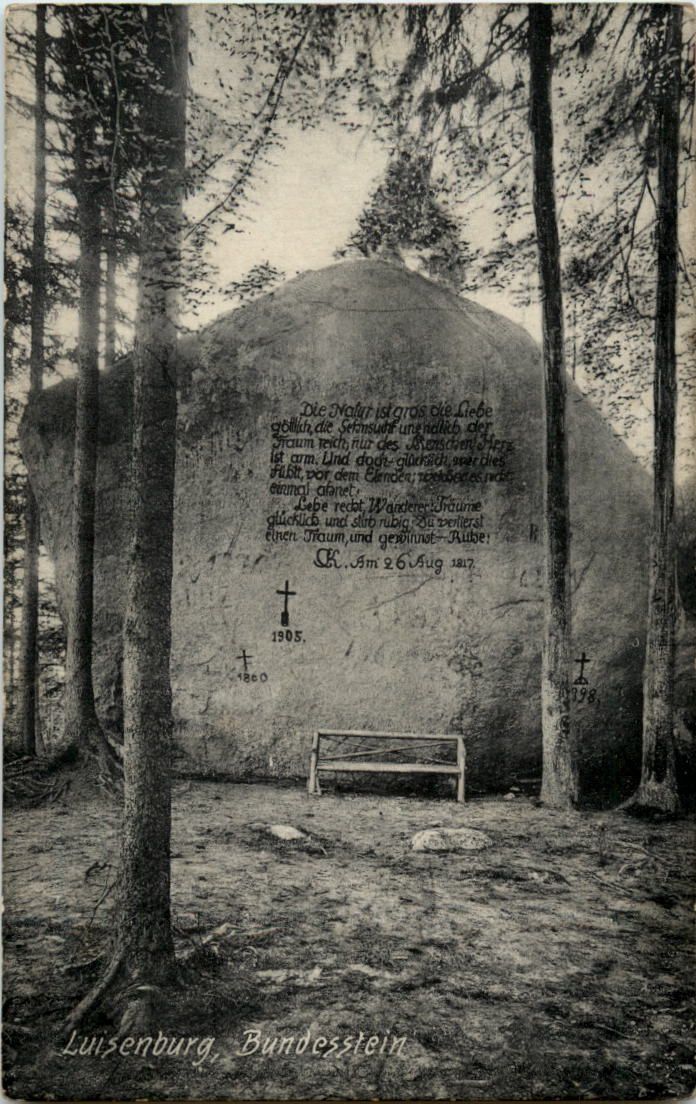 Die Natur ist gros die Liebe
göttlich, die Sehnsucht unendlich der
Traum reich; nur des Menschen Herz
ist arm. Und doch- glücklich, wer dies
fühlt, vor dem Elenden; welcher es nicht
einmal ahnet:
Lebe recht, Wanderer: Träume
glücklich und stirb ruhig: Du verlierst
einen Traum, und gewinnst - Ruhe:
Am 26 Aug 1817.
1905.
1860
898.
Luisenburg, Bundesstein